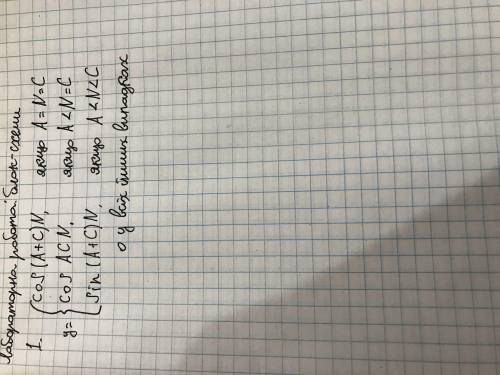 Лабораторна робота "Блок-схеми
1.
y = { Cos (A+C)N, якщо A = N = C
Cos ACN, якщо A < N = C
Sin (A+C)N, якщо A < N < C
0 у всіх інших випадках